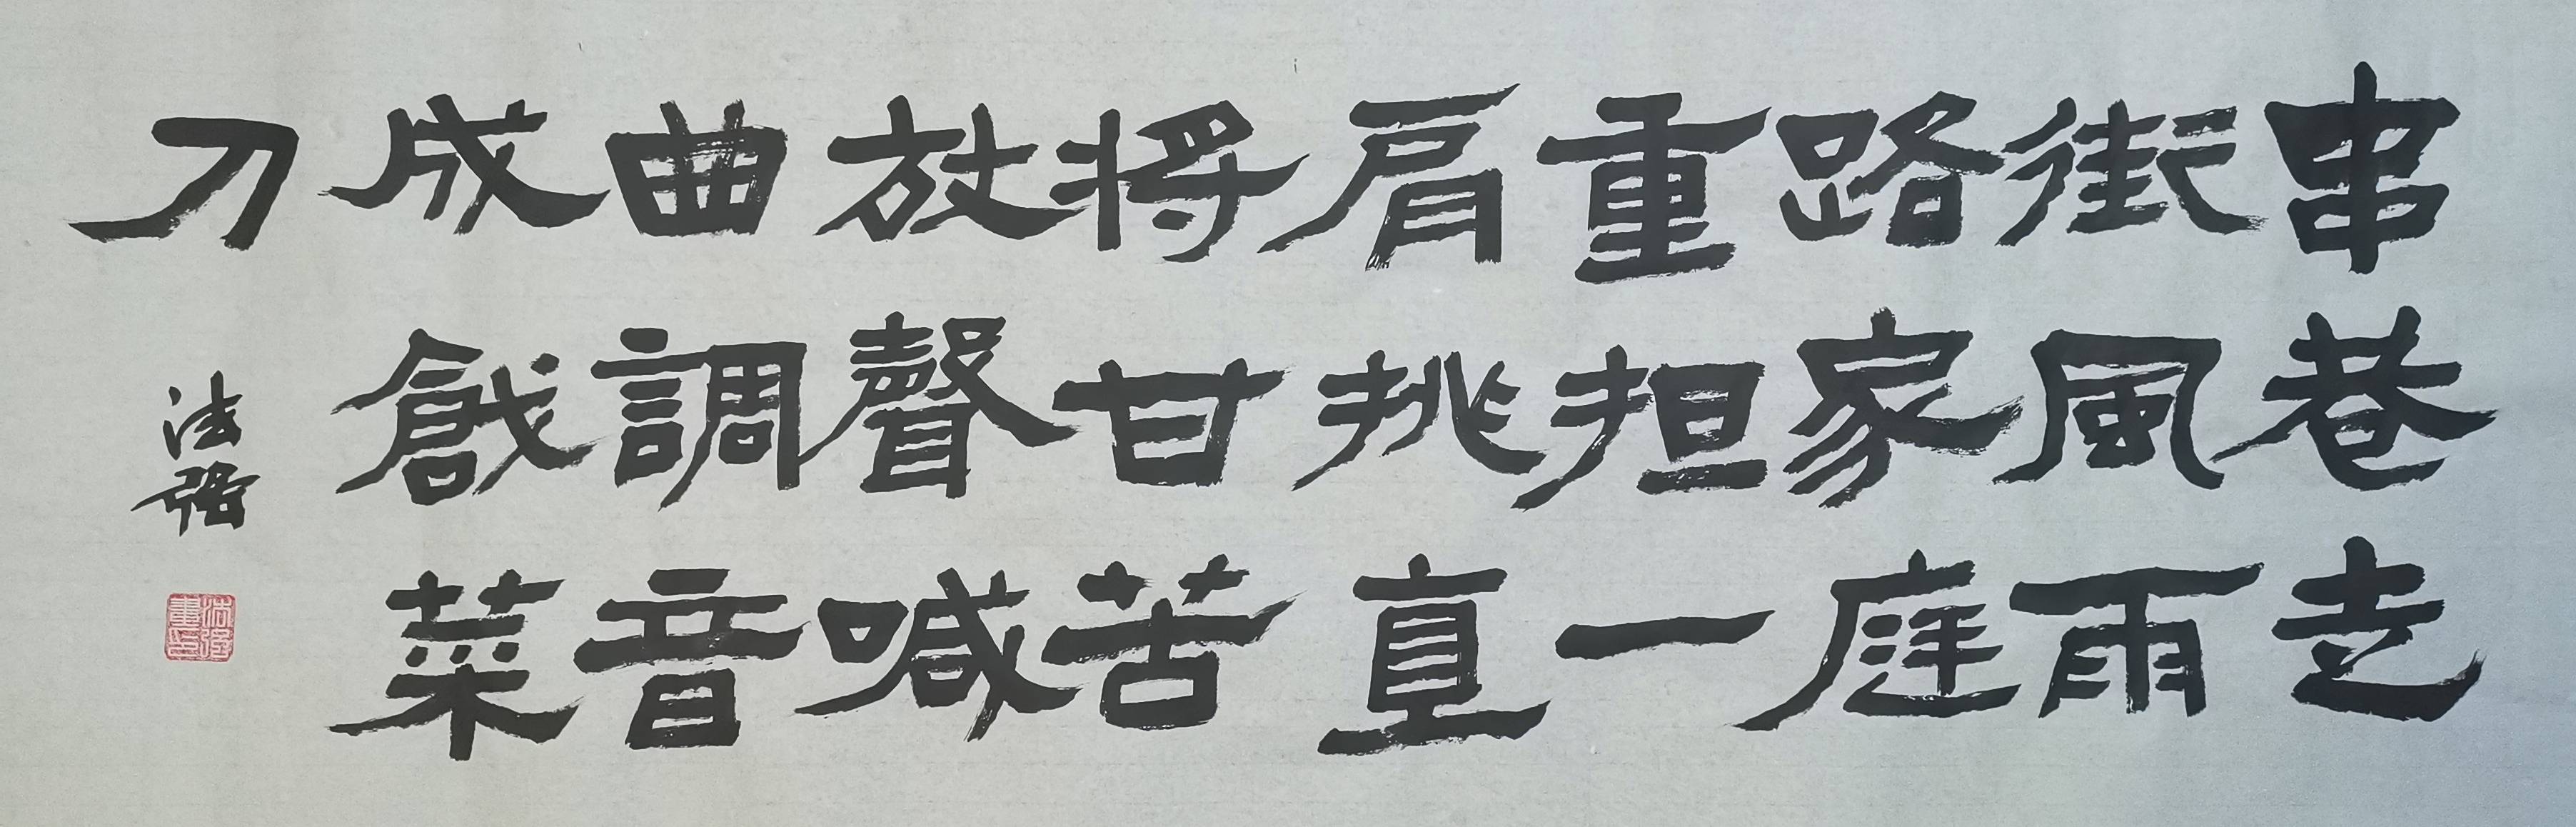 串巷走
街風雨
路家庭
重担一
肩挑直
将甘苦
放聲喊
曲調音
成戧菜
刀
法强